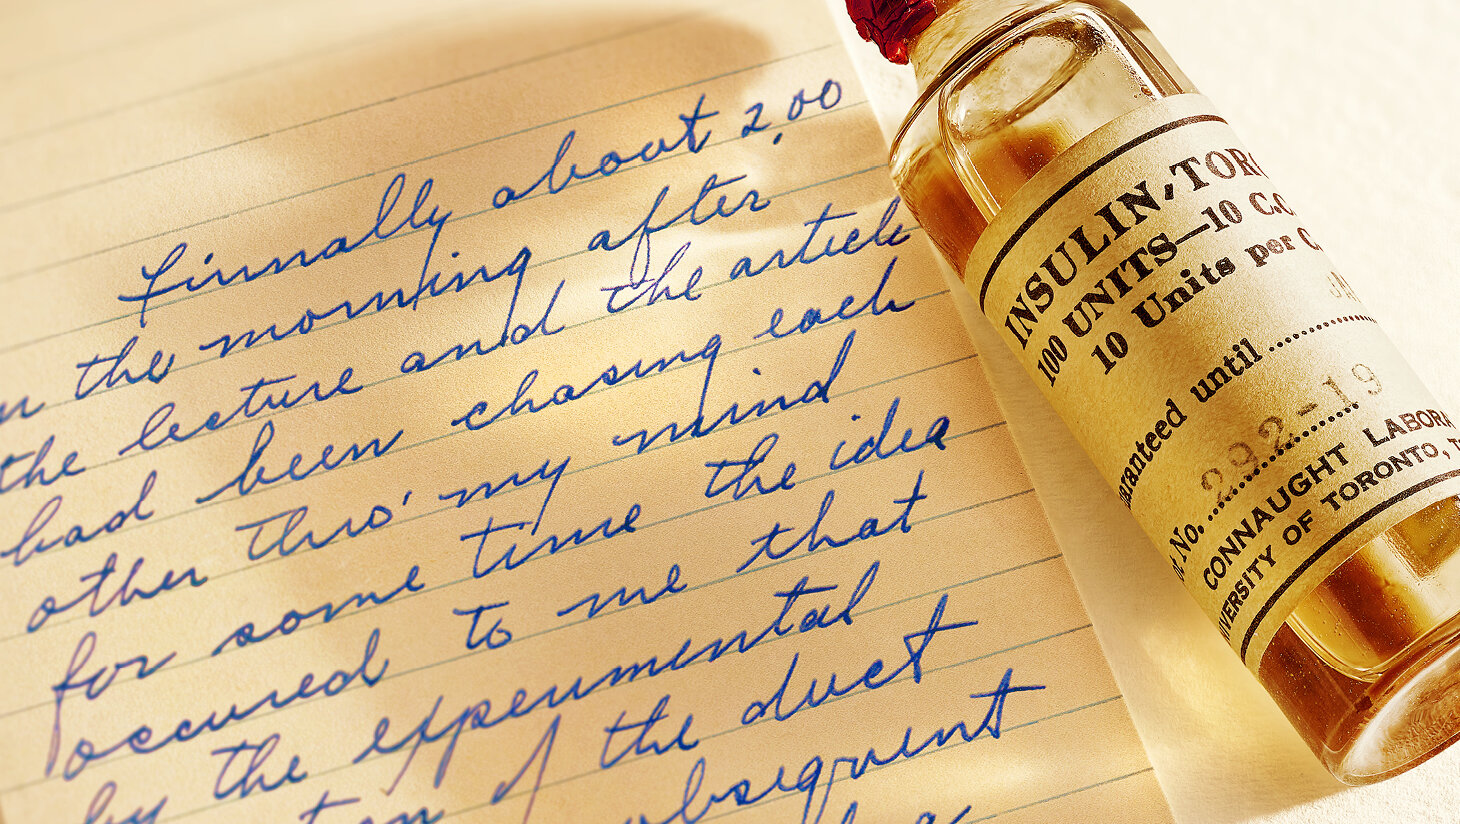 Finnally about 2,00
in the morning after
the lecture and the article
had been chasing each
other thro' my mind
for some time the idea
occured to me that
by the experimental
of the duct
INSULIN, TOR
100 UNITS—10 C.C.
10 Units per C.
until
292-19
No.
CONNAUGHT LABORA
VERSITY OF TORONTO,